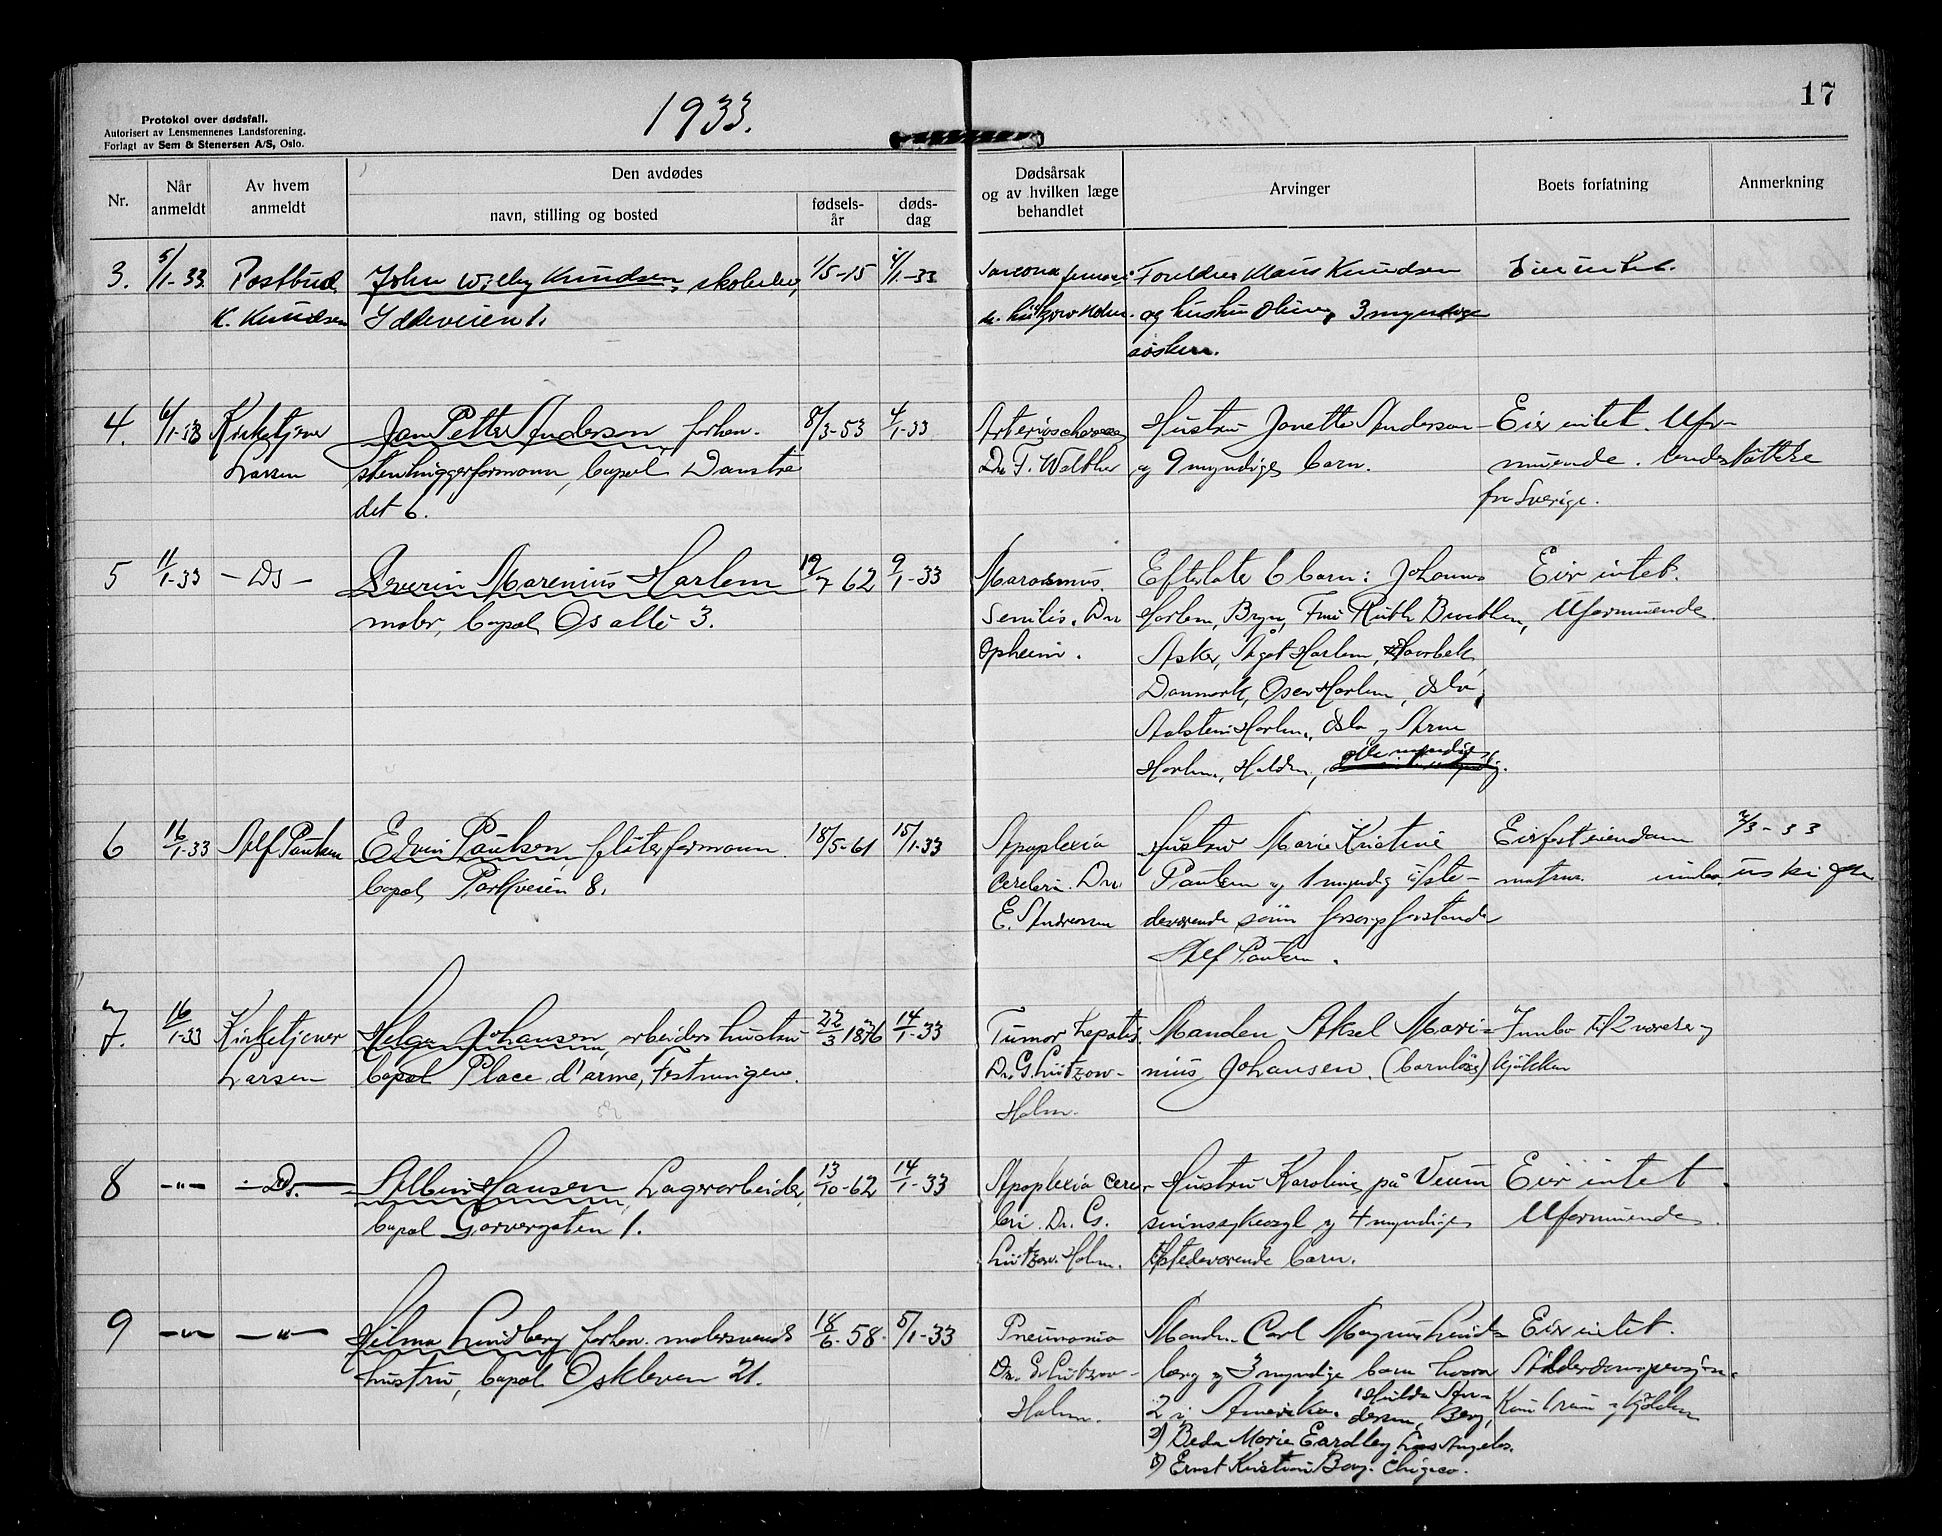 1933.
17
Protokol over dødsfall.
Autorisert av Lensmennenes Landsforening.
Forlagt av Sem & Stenersen A/S, Oslo.
Nr.
Når
anmeldt
Av hvem
anmeldt
Den avdødes
navn, stilling og bosted
fødsels-
år
døds-
dag
Dødsårsak
og av hvilken læge
behandlet
Arvinger
Boets forfatning
Anmerkning
3. 5/1-33 Postbud John Willy Knudsen, 1/5-15 4/1-33 Foreldre Klaus Knudsen Eier intet.
K. Knudsen Iddeveien 1. og hustru 3 myndige
søsken.
4. 6/1-33 Kirketjener Jan Petter Anderson, forhen. 8/3-53 4/1-33 Hustru Janette Anderson Eier intet. Ufor-
Larsen stenhuggerformann, bopæl Danske Dr. F. Walther og 9 myndige barn. muende. understøttelse
det 6. fra Sverige.
5 11/1-33 - Ds - Severin Marenius Harlem 19/7 62 9/1-33 Marasmus Efterlater 6 barn: Johannes Eier intet.
maler, bopæl Os allé 3. Senilis. Dr. Harlem, Bryn, Fru Ruth Uformuende.
Opheim. Asker, Ågot Harlem,
Danmark, Harlem, Oslo,
Harlem, Oslo og Arne
Harlem, Halden, alle myndige.
6 16/1-33 Alf Paulsen Edvin Paulsen, fløterformann 18/5-61 15/1-33 Apoplexia Hustru Marie Kristine Eier fast eiendom 2/3-33
bopæl Parkveien 8. Cerebri. Dr. Paulsen og 1 myndig tilste- uskifte
E. Andreassen deværende sønn forsorgsforstander
Alf Paulsen.
7. 16/1-33 Kirketjener Helga Johansen, arbeiders hustru 22/3 1876 14/1-33 Tumor hepatis. Manden Aksel Mari- Innbo til 2 værelser og
Larsen bopæl Place d'arme, Festningen. Dr. G. Lützow- nius Johansen. (barnløs) kjøkken
Holm.
8 -"- - Ds. - Albin Hansen, Lagerarbeider, 13/10-62 14/1-33 Apoplexia cere- Hustru Karoline på Veum Eier intet.
bopæl Garvergaten 1. bri. Dr. G. sinnsykeasyl og 4 myndige Uformuende.
Lützow-Holm. tilstedeværende barn.
9 -"- -"- Hilma Lindberg forhen. malersvends 18/6-58. 5/1-33 Pneumonia Manden Carl Magnus Lind- Eier intet.
hustru, bopæl Oskleven 21. Dr. G. Lützow- berg og 3 myndige barn hvorav Alderdomspensjon.
Holm. 2 i Amerika. 1 Hulda An- Kun 1 rum og kjøkken
dersen, Berg,
2) Beda Marie Eardley Los Angelos.
3) Ernst Kristian Berg. Chigaco.